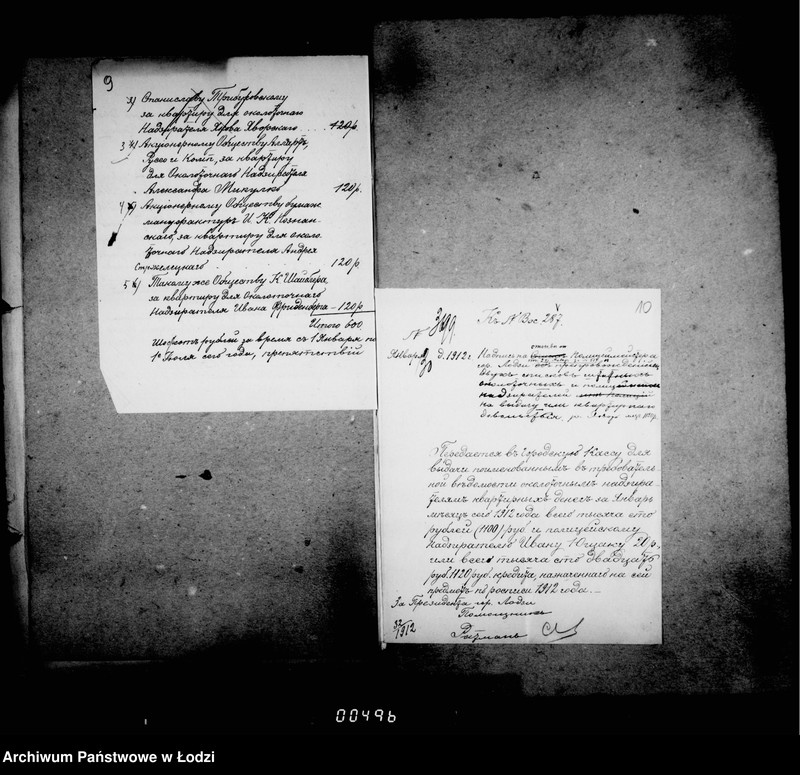 9
3) Станиславу Трибуровскому
за квартиру для околоточнаго
Надзирателя Ярова Яворскаго .. 120р.
3 4) Акціонерному Обществу Аллартъ,
Руссо и Комп, за квартиру
для Околоточнаго Надзирателя
Александра Микулко 120р.
4 5) Акціонерному Обществу бумаж
мануфактуръ И. К. Познан-
скаго, за квартиру для около
точнаго Надзирателя Андрея
Стржелецкаго 120р
5 6) Такому же Обществу К Шайблера
за квартиру для Околоточнаго
Надзирателя Ивана Фриденберга – 120р
Итого 600
Шестьсотъ рублей за время съ 1 Января по
1 Іюля сего года,
10
Къ № Вос 287.
№ 3499
Января 30 д. 1912 г.
Надпись на Полиціймейстера
гор. Лодзи
двухъ списковъ штатныхъ
околоточныхъ и
надзирателей
на выдачу имъ квартирнаго
довольствія
Передается въ Городскую Кассу для
выдачи поименованнымъ въ требователь-
ной вѣдомости околоточнымъ надзира-
телямъ квартирныхъ денегъ за Январь
мѣсяцъ сего 1912 года всего тысяча сто
рублей (1100) руб и полицейскому
надзирателю Ивану Ющаку 20 р.
или всего тысяча сто двадцать
руб. 1120 руб. кредита, назначеннаго на сей
предметъ по росписи 1912 года. –
За Президента гор. Лодзи
Помощникъ
32/1912
00496
Archiwum Państwowe w Łodzi